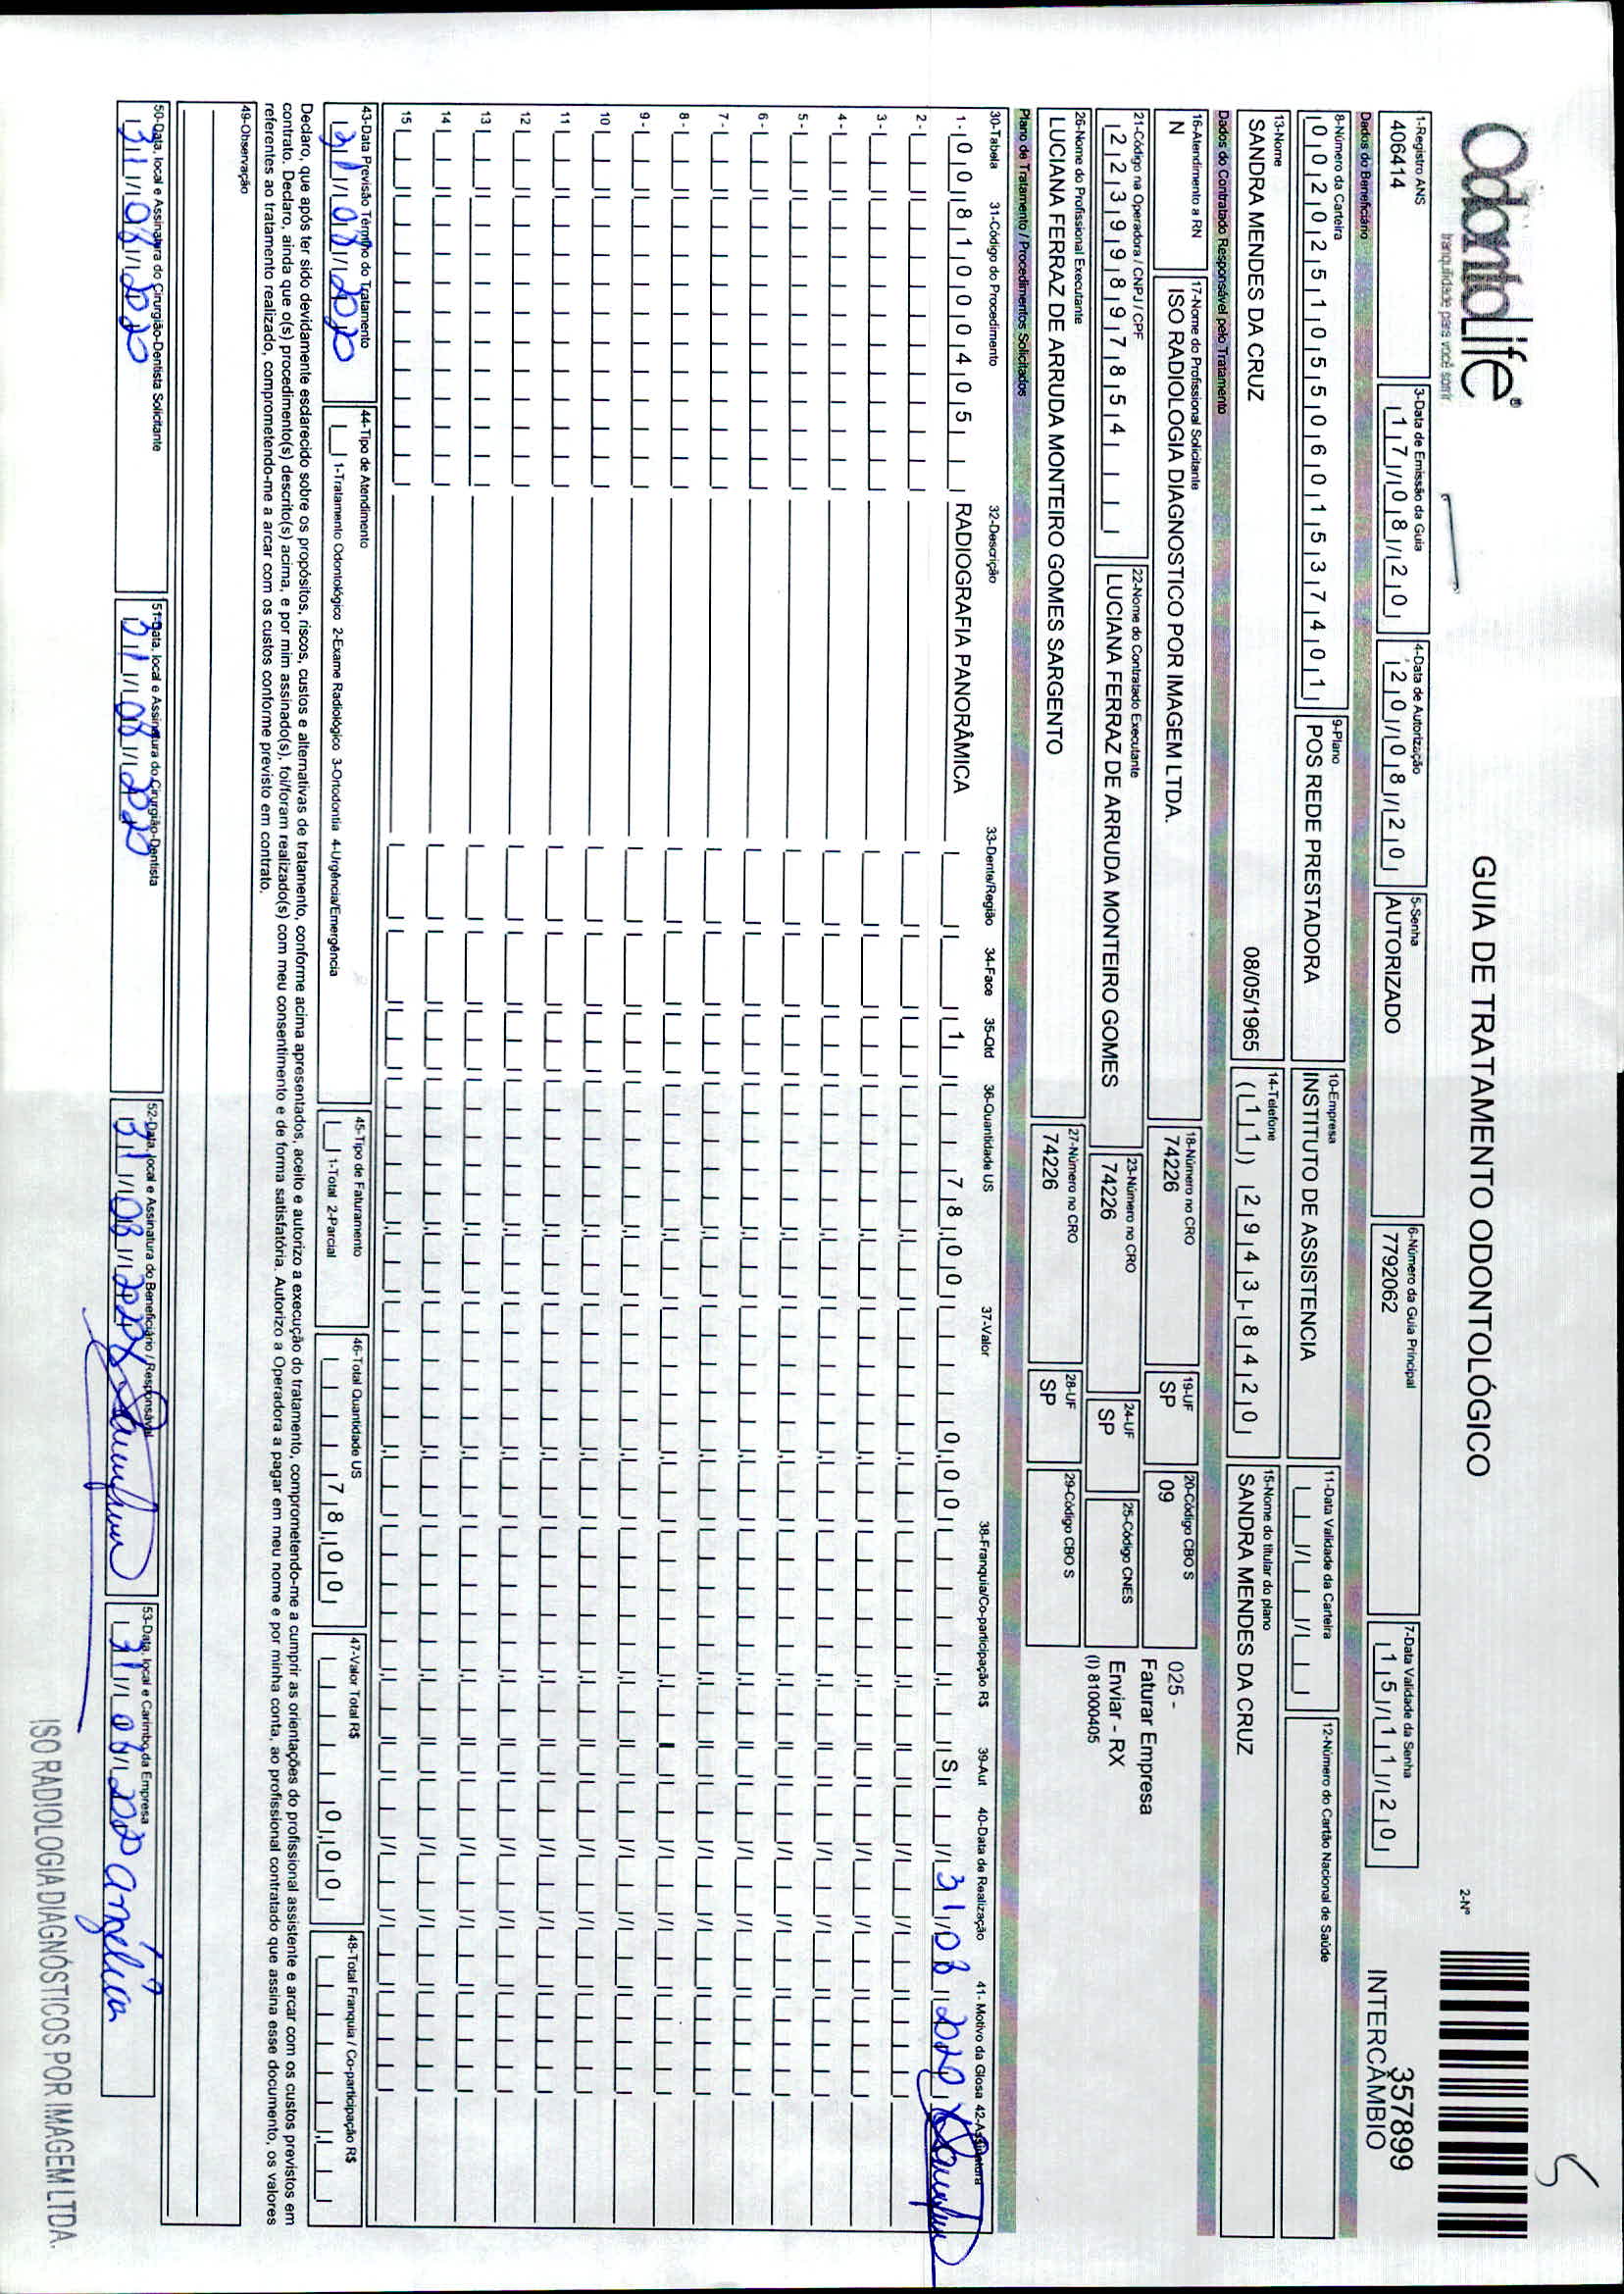 OdontoLife®
tranquilidade para você sorrir
GUIA DE TRATAMENTO ODONTOLÓGICO
2-Nº
357899
INTERCÂMBIO
5
1-Registro ANS
406414
3-Data de Emissão da Guia
17/08/20
4-Data de Autorização
20/08/20
5-Senha
AUTORIZADO
6-Número da Guia Principal
7792062
7-Data Validade da Senha
15/11/20
Dados do Beneficiário
8-Número da Carteira
00202510550601537401
9-Plano
POS REDE PRESTADORA
10-Empresa
INSTITUTO DE ASSISTENCIA
11-Data Validade da Carteira
12-Número do Cartão Nacional de Saúde
13-Nome
SANDRA MENDES DA CRUZ 08/05/1965
14-Telefone
(11) 2943-8420
15-Nome do titular do plano
SANDRA MENDES DA CRUZ
Dados do Contratado Responsável pelo Tratamento
16-Atendimento a RN
N
17-Nome do Profissional Solicitante
ISO RADIOLOGIA DIAGNOSTICO POR IMAGEM LTDA.
18-Número no CRO
74226
19-UF
SP
20-Código CBO S
09
025 -
Faturar Empresa
Enviar - RX
(I) 81000405
21-Código na Operadora / CNPJ / CPF
22399897854
22-Nome do Contratado Executante
LUCIANA FERRAZ DE ARRUDA MONTEIRO GOMES
23-Número no CRO
74226
24-UF
SP
25-Código CNES
26-Nome do Profissional Executante
LUCIANA FERRAZ DE ARRUDA MONTEIRO GOMES SARGENTO
27-Número no CRO
74226
28-UF
SP
29-Código CBO S
Plano de Tratamento / Procedimentos Solicitados
30-Tabela 31-Código do Procedimento 32-Descrição 33-Dente/Região 34-Face 35-Qtd 36-Quantidade US 37-Valor 38-Franquia/Co-participação R$ 39-Aut 40-Data de Realização 41- Motivo da Glosa 42-Assinatura
1- 00 81000405 RADIOGRAFIA PANORÂMICA 1 78,00 0,00 S 31/08/2020
2-
3-
4-
5-
6-
7-
8-
9-
10
11
12
13
14
15
43-Data Previsão Término do Tratamento
31/08/2020
44-Tipo de Atendimento
1-Tratamento Odontológico 2-Exame Radiológico 3-Ortodontia 4-Urgência/Emergência
45-Tipo de Faturamento
1-Total 2-Parcial
46-Total Quantidade US
78,00
47-Valor Total R$
0,00
48-Total Franquia / Co-participação R$
Declaro, que após ter sido devidamente esclarecido sobre os propósitos, riscos, custos e alternativas de tratamento, conforme acima apresentados, aceito e autorizo a execução do tratamento, comprometendo-me a cumprir as orientações do profissional assistente e arcar com os custos previstos em
contrato. Declaro, ainda que o(s) procedimento(s) descrito(s) acima, e por mim assinado(s), foi/foram realizado(s) com meu consentimento e de forma satisfatória. Autorizo a Operadora a pagar em meu nome e por minha conta, ao profissional contratado que assina esse documento, os valores
referentes ao tratamento realizado, comprometendo-me a arcar com os custos conforme previsto em contrato.
49-Observação
50-Data, local e Assinatura do Cirurgião-Dentista Solicitante
31/08/2020
51-Data, local e Assinatura do Cirurgião-Dentista
31/08/2020
52-Data, local e Assinatura do Beneficiário / Responsável
31/08/2020
53-Data, local e Carimbo da Empresa
31/08/2020 Angélica
ISO RADIOLOGIA DIAGNÓSTICOS POR IMAGEM LTDA.